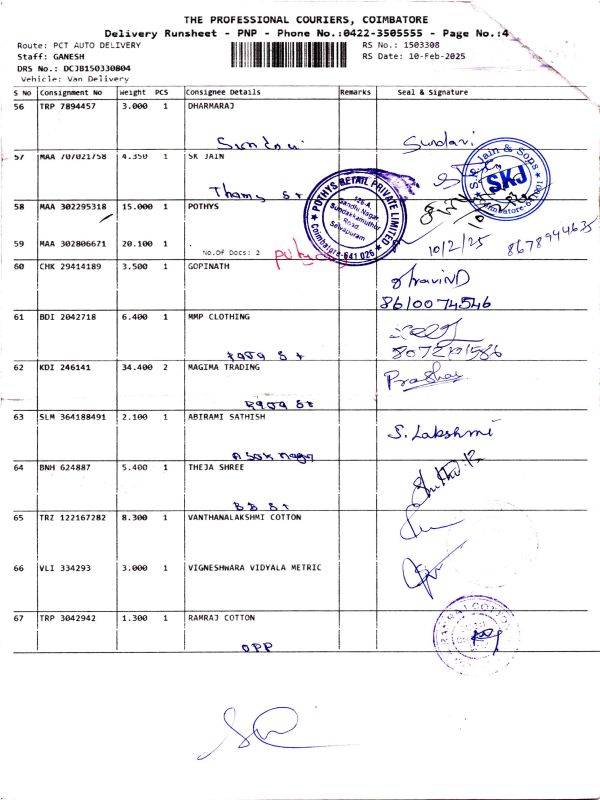 THE PROFESSIONAL COURIERS, COIMBATORE
Delivery Runsheet - PNP - Phone No.:0422-3505555 - Page No.:4
Route: PCT AUTO DELIVERY RS No.: 1503308
Staff: GANESH RS Date: 10-Feb-2025
DRS No.: DCJB150330804
Vehicle: Van Delivery
S No Consignment No Weight PCS Consignee Details Remarks Seal & Signature
56 TRP 7894457 3.000 1 DHARMARAJ
Sundari
57 MAA 707021758 4.350 1 SK JAIN
S. Jain & Sons
SKJ
Coimbatore
58 MAA 302295318 15.000 1 POTHYS
POTHYS RETAIL PRIVATE LIMITED
Gandhi Nagar
Sundakkamuthur
Road,
Selvapuram
Coimbatore-641 026
59 MAA 302806671 20.100 1
No.Of Docs: 2
Pothys
10/2/25 8678944635
60 CHK 29414189 3.500 1 GOPINATH
8610074546
61 BDI 2042718 6.400 1 MMP CLOTHING
62 KDI 246141 34.400 2 MAGIMA TRADING
63 SLM 364188491 2.100 1 ABIRAMI SATHISH
S. Lakshmi
64 BNH 624887 5.400 1 THEJA SHREE
65 TRZ 122167282 8.300 1 VANTHANALAKSHMI COTTON
66 VLI 334293 3.000 1 VIGNESHWARA VIDYALA METRIC
67 TRP 3042942 1.300 1 RAMRAJ COTTON
RAMRAJ COTTON
OPP